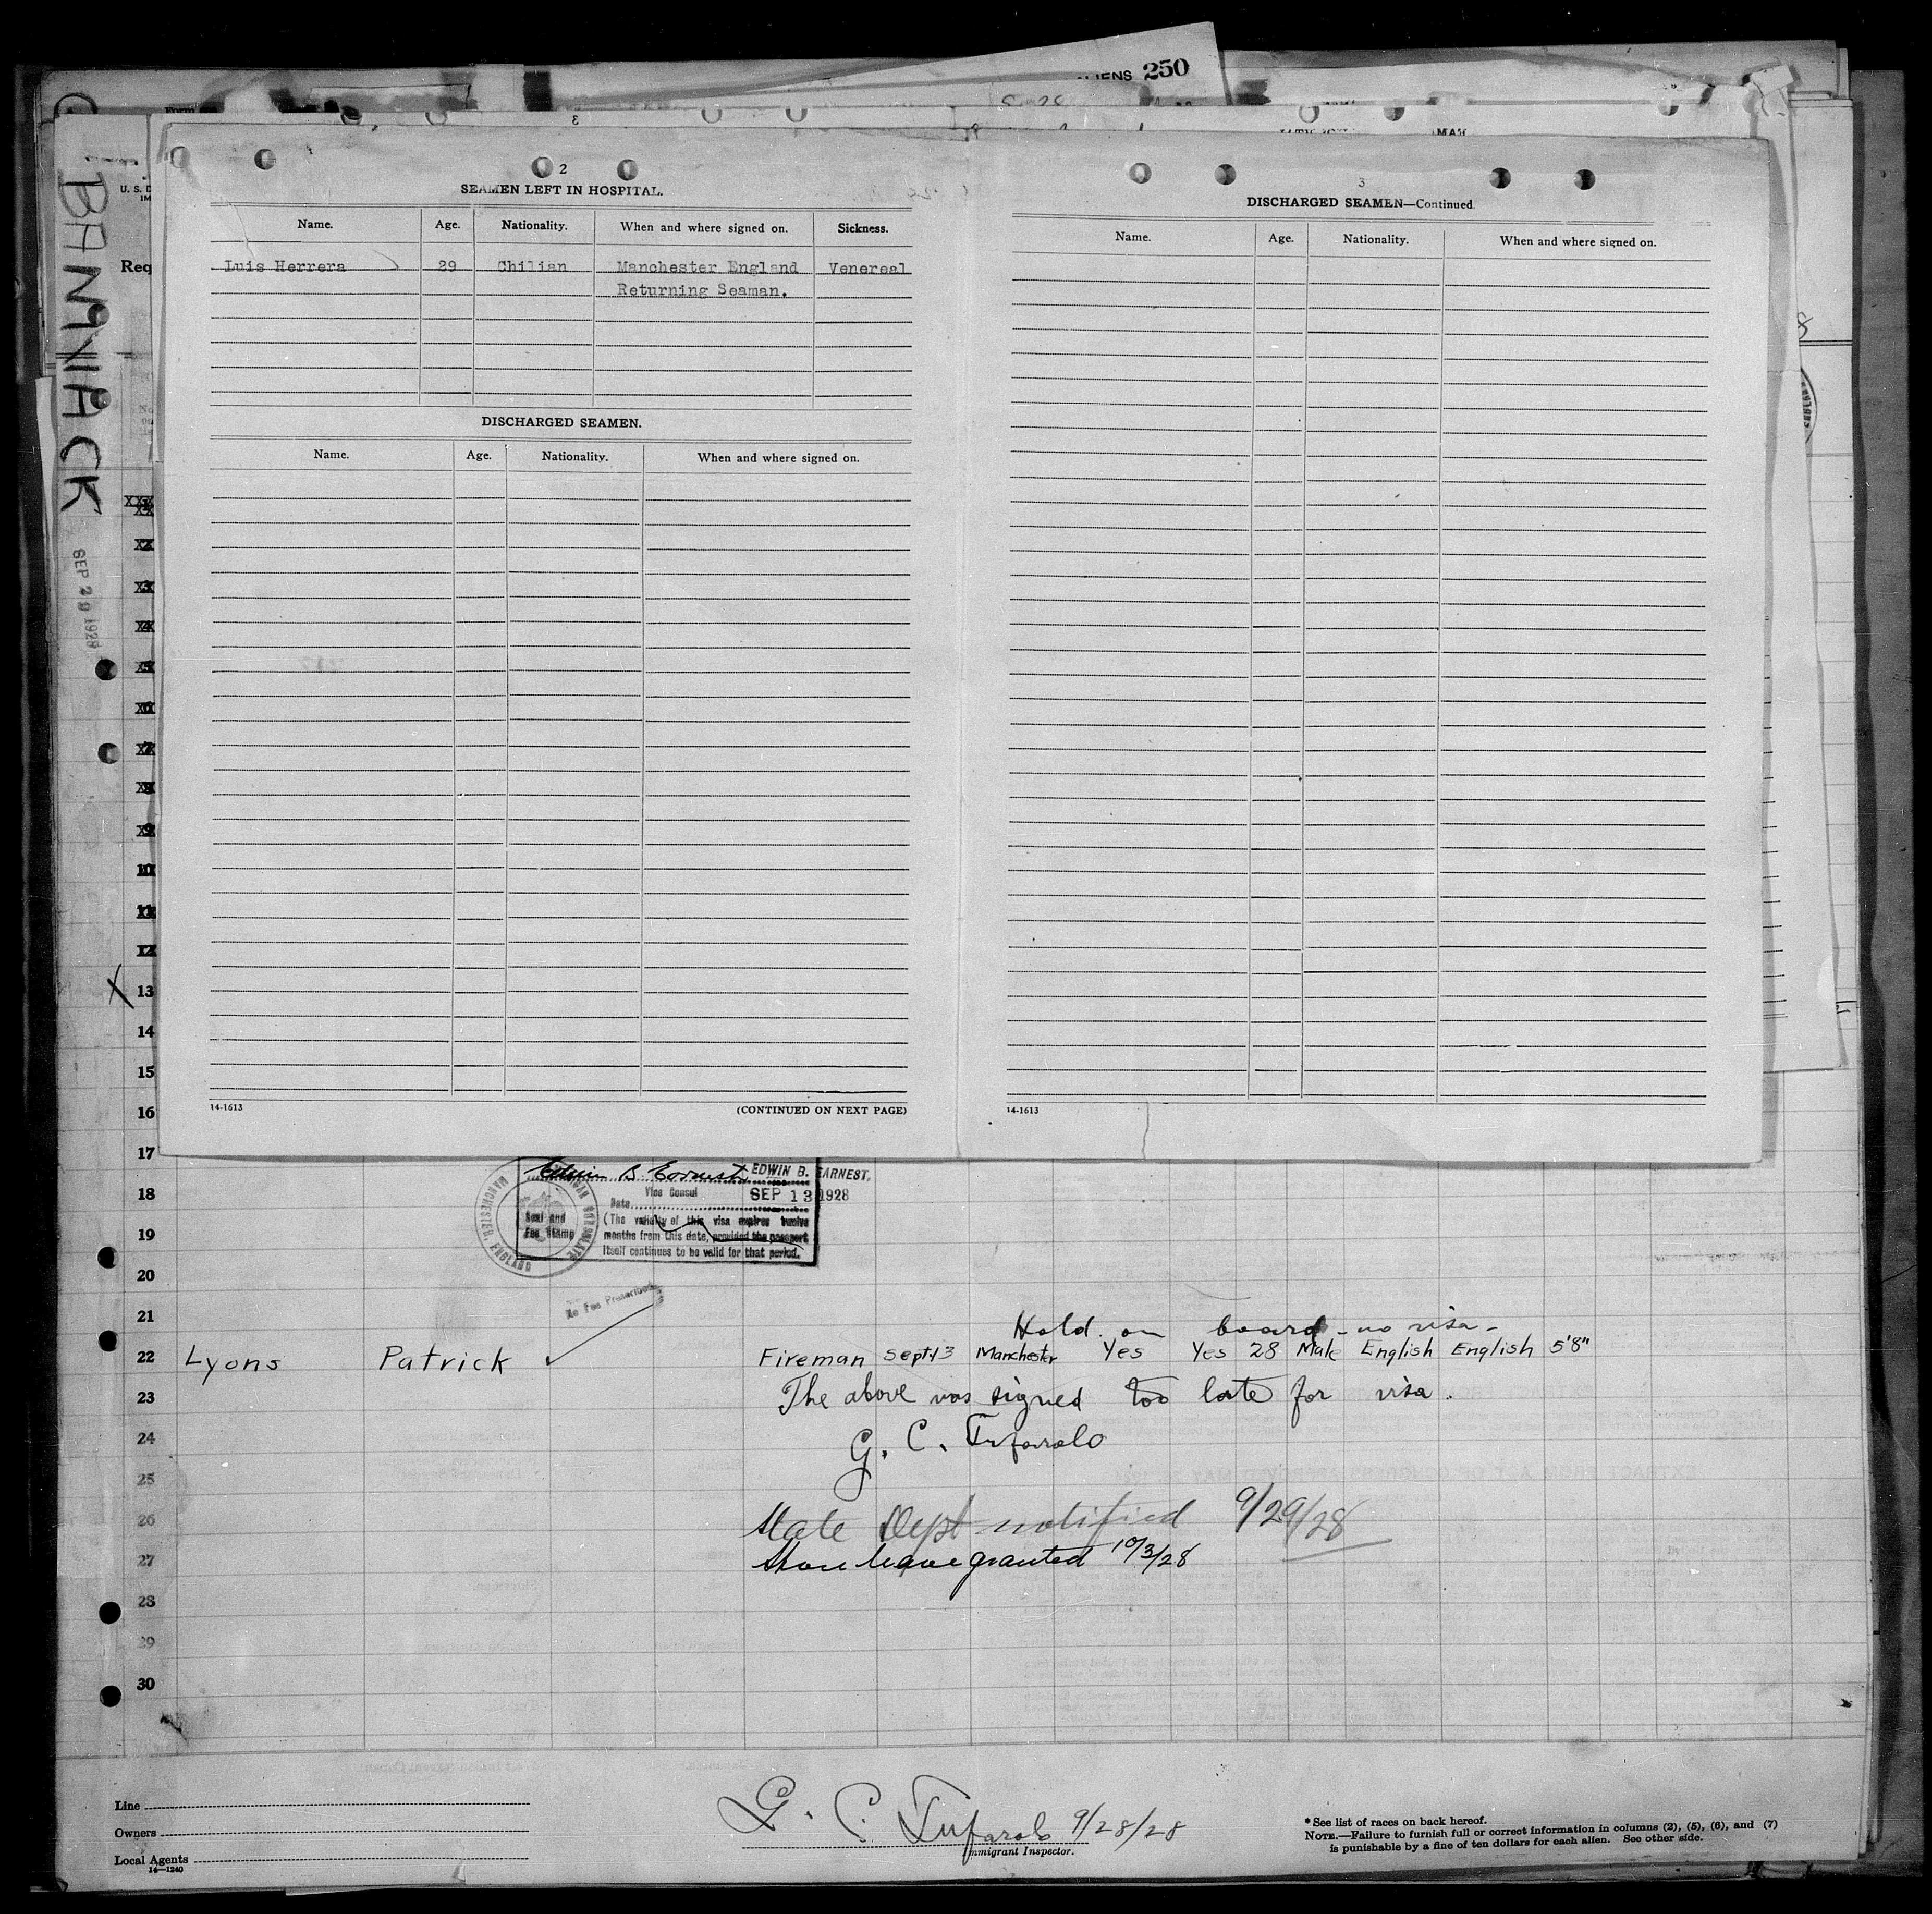 ALIENS 250
Form
3
BAMMACK
SEP 29 1928
U. S. D
IM
Req
2
SEAMEN LEFT IN HOSPITAL.
Name. Age. Nationality. When and where signed on. Sickness.
Luis Herrera 29 Chilian Manchester England Venereal
Returning Seaman.
DISCHARGED SEAMEN.
Name. Age. Nationality. When and where signed on.
14-1613 (CONTINUED ON NEXT PAGE)
3
DISCHARGED SEAMEN—Continued.
Name. Age. Nationality. When and where signed on.
14-1613
2
3
4
5
6
7
8
9
10
11
12
X 13
14
15
16
17
18
19
20
21
22
23
24
25
26
27
28
29
30
Edwin B. Earnest EDWIN B. EARNEST.
Vice Consul
Date SEP 13 1928
(The validity of this visa expires twelve
months from this date, provided the passport
itself continues to be valid for that period.
Seal and
Fee Stamp
MANCHESTER, ENGLAND
No Fee Prescribed
Hold on board - no visa -
Lyons Patrick ✓ Fireman Sept 13 Manchester Yes Yes 28 Male English English 5'8"
The above was signed too late for visa.
G. C. Tufarolo
State Dept notified 9/29/28
Shore leave granted 10/3/28
Line
Owners
Local Agents
14—1240
G. C. Tufarolo 9/28/28
Immigrant Inspector.
* See list of races on back hereof.
NOTE.—Failure to furnish full or correct information in columns (2), (5), (6), and (7)
is punishable by a fine of ten dollars for each alien. See other side.